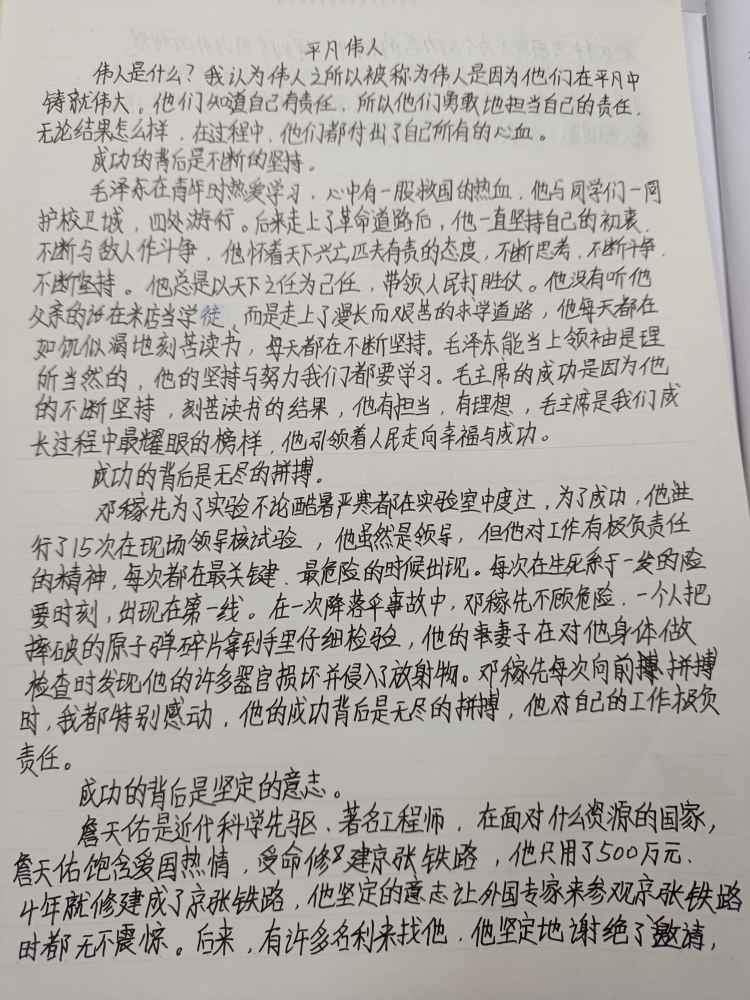 平凡伟人
伟人是什么？我认为伟人之所以被称为伟人是因为他们在平凡中
铸就伟大。他们知道自己有责任，所以他们勇敢地担当自己的责任，
无论结果怎么样，在过程中，他们都付出了自己所有的心血。
成功的背后是不断的坚持。
毛泽东在青年时热爱学习，心中有一股救国的热血，他与同学们一同
护校卫城，四处游行。后来走上了革命道路后，他一直坚持自己的初衷，
不断与敌人作斗争，他怀着天下兴亡匹夫有责的态度，不断思考，不断斗争，
不断坚持。他总是以天下之任为己任，带领人民打胜仗。他没有听他
父亲的话在米店当学徒，而是走上了漫长而艰苦的求学道路，他每天都在
如饥似渴地刻苦读书，每天都在不断坚持。毛泽东能当上领袖是理
所当然的，他的坚持与努力我们都要学习。毛主席的成功是因为他
的不断坚持，刻苦读书的结果，他有担当，有理想，毛主席是我们成
长过程中最耀眼的榜样，他引领着人民走向幸福与成功。
成功的背后是无尽的拼搏。
邓稼先为了实验不论酷暑严寒都在实验室中度过，为了成功，他进
行了15次在现场领导核试验，他虽然是领导，但他对工作有极负责任
的精神，每次都在最关键、最危险的时候出现。每次在生死系于一发的险
要时刻，出现在第一线。在一次降落伞事故中，邓稼先不顾危险，一个人把
摔破的原子弹碎片拿到手里仔细检验，他的妻子在对他身体做
检查时发现他的许多器官损坏并侵入了放射物。邓稼先每次向前拼搏
时，我都特别感动，他的成功背后是无尽的拼搏，他对自己的工作极负
责任。
成功的背后是坚定的意志。
詹天佑是近代科学先驱、著名工程师，在面对什么资源的国家，
詹天佑饱含爱国热情，受命修建京张铁路，他只用了500万元、
4年就修建成了京张铁路，他坚定的意志让外国专家来参观京张铁路
时都无不震惊。后来，有许多名利来找他，他坚定地谢绝了邀请，